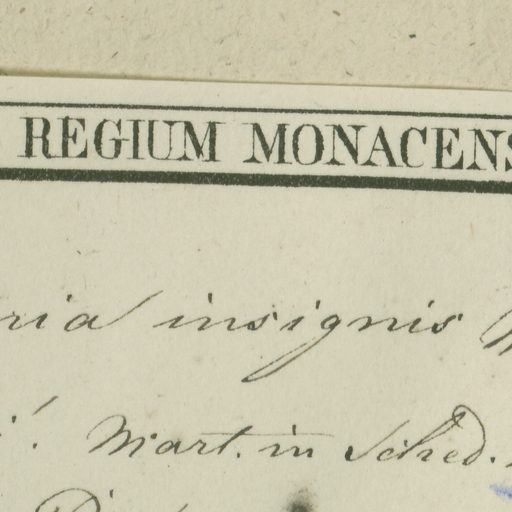 REGIUM MONACENS
ria insignis
! Mart. in Sched.